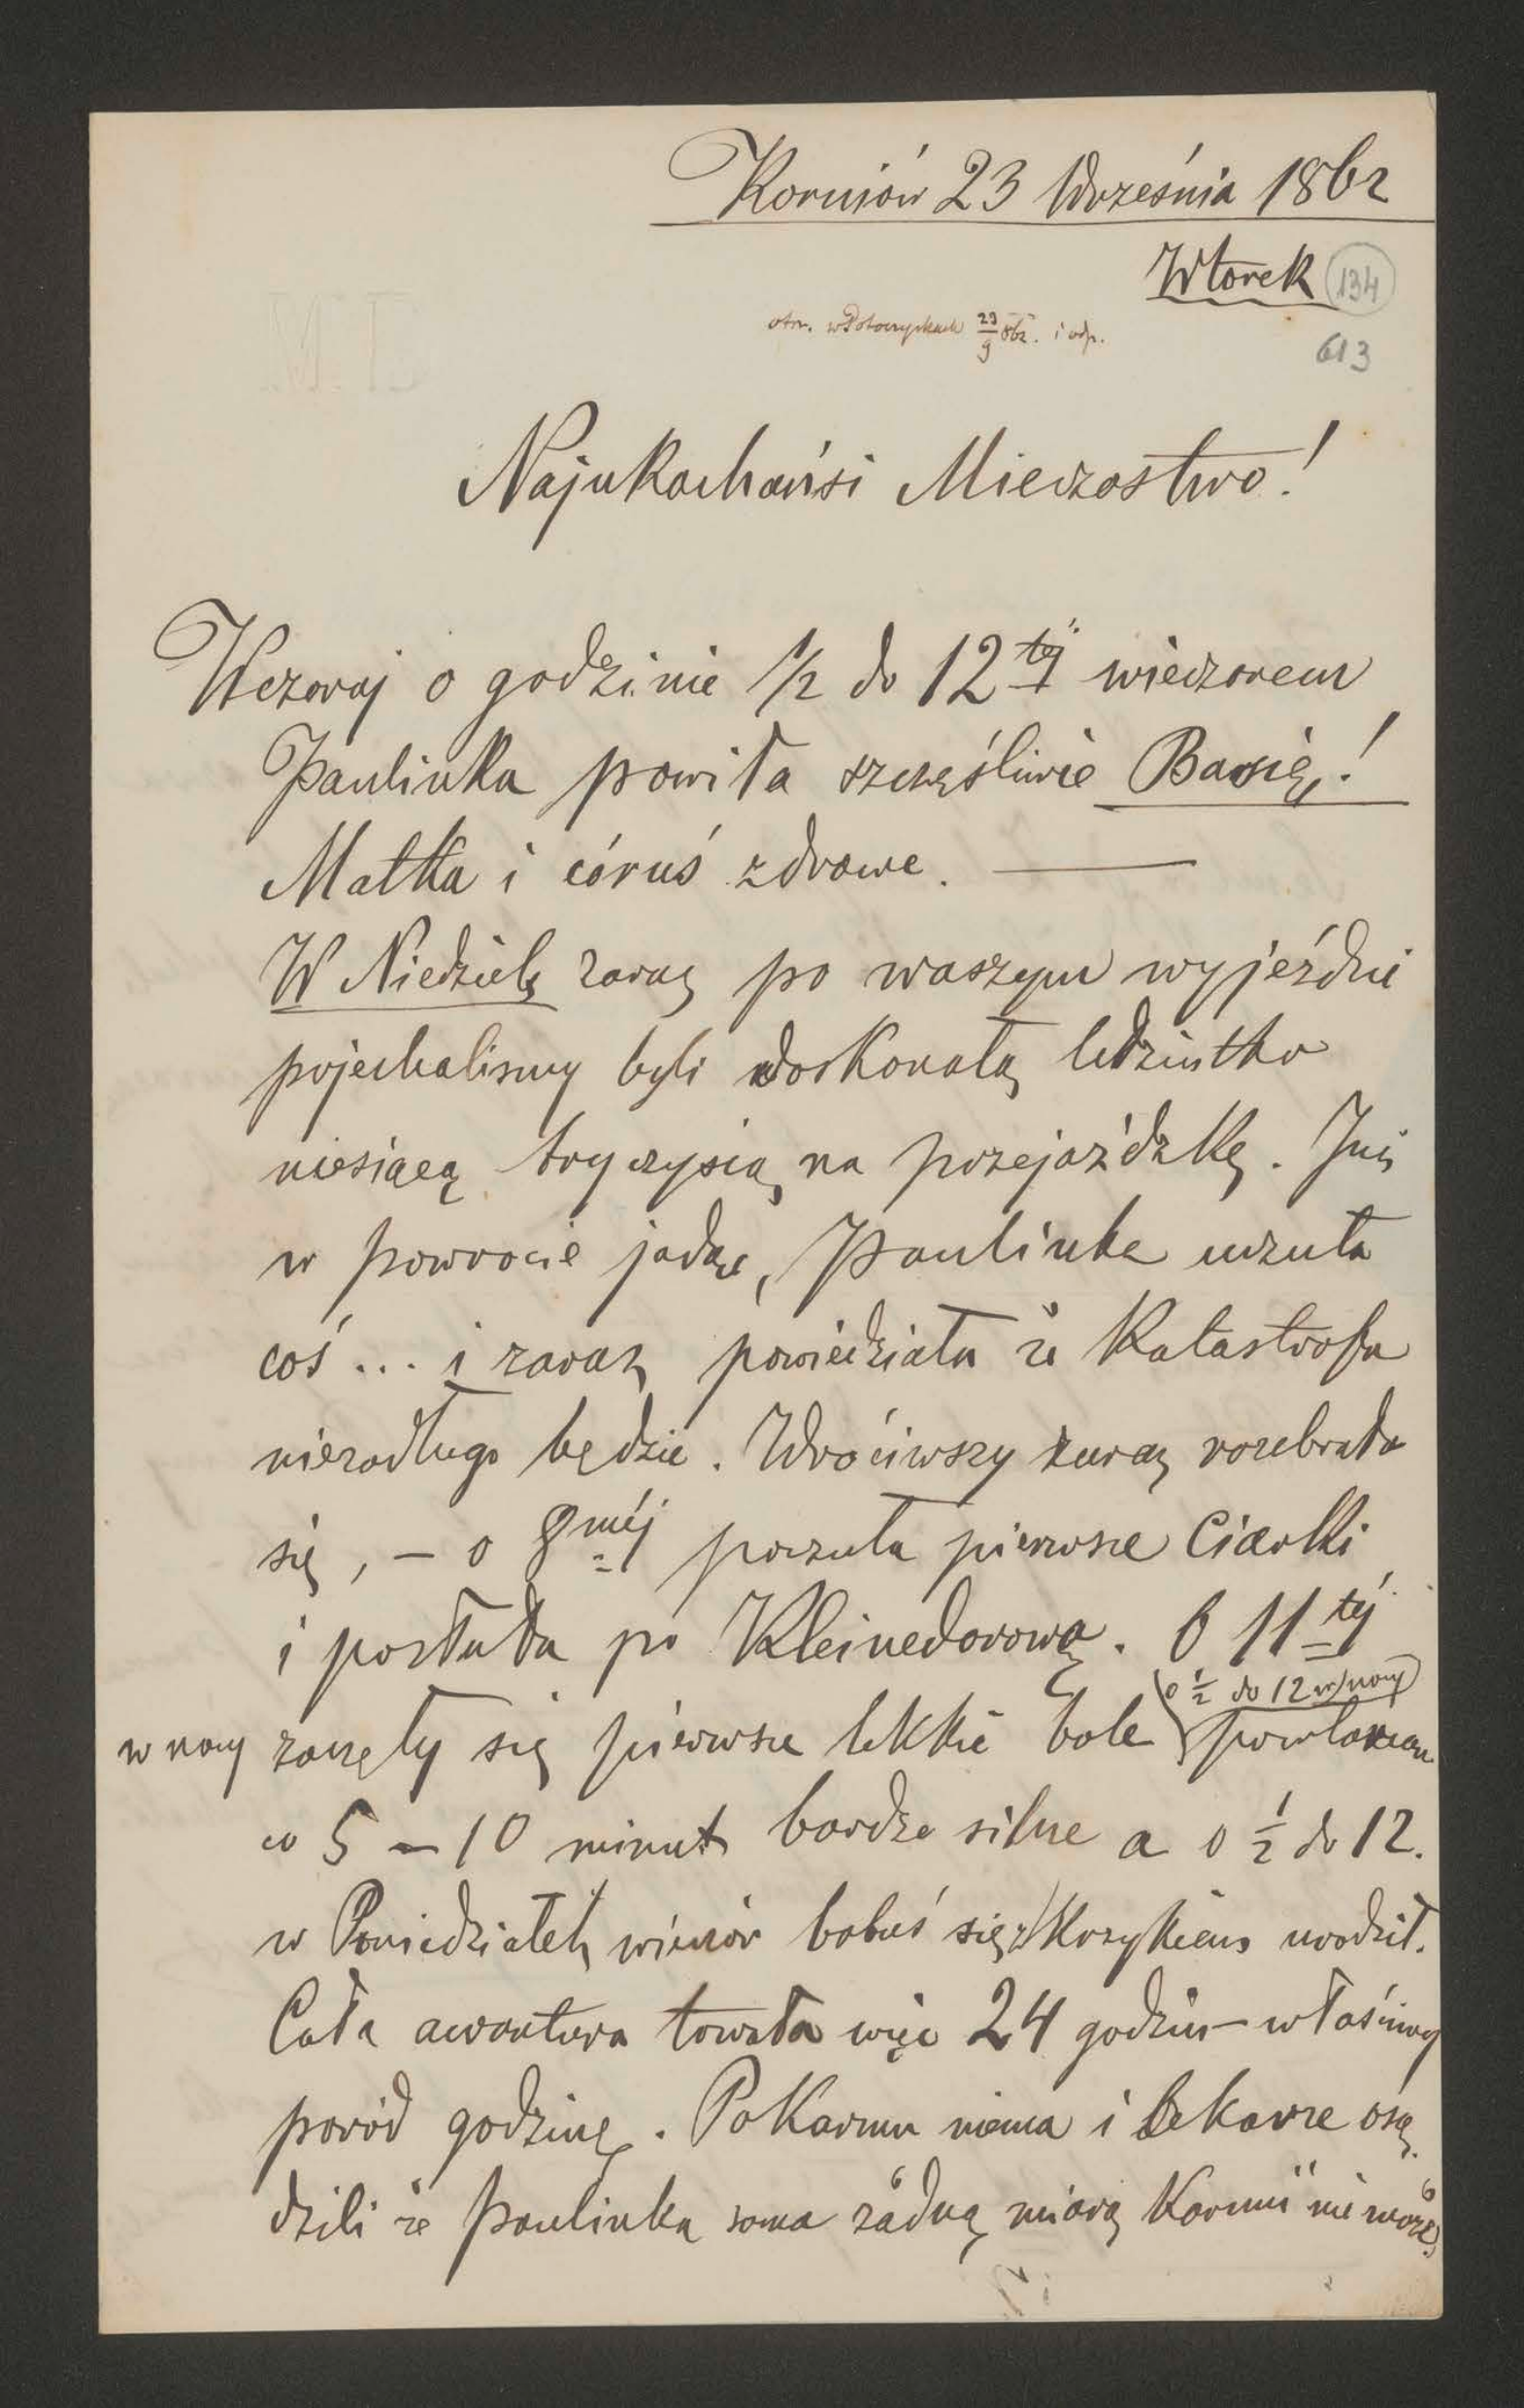 Korniów 23 Września 1862
Wtorek
134
otrz. w 29/9 862. i odp.
613
Najukochańsi Mieczostwo!
Wczoraj o godzinie 1/2 do 12téj wieczorem
Paulinka powiła szczęśliwie Basię!
Matka i córuś zdrowe. —
W Niedzielę zaraz po waszym wyjeździe
pojechalismy byli doskonałą leciutko
niesiącą bryczysią na przejażdżkę. Już
w powrocie jadąc, Paulinka uczuła
coś... i zaraz powiedziała że Katastrofa
niezadługo będzie. Wróciwszy zaraz rozebrała
się, – o 8méj poczuła pierwsze Ciarki
i posłała po Kleinedorową. O 11téj
(o 1/2 do 12 w nocy)
w nocy zaczęły się pierwsze lekkie bole
co 5 – 10 minut bardzo silne a o 1/2 do 12.
w Poniedziałek wieczór bobuś się z Krzykiem urodził.
Cała awantura trwała więc 24 godzin – właściwy
poród godzinę. Pokarmu niema i Lekarze osą-
dzili że Paulinka sama żadną miarą Karmić nie może,